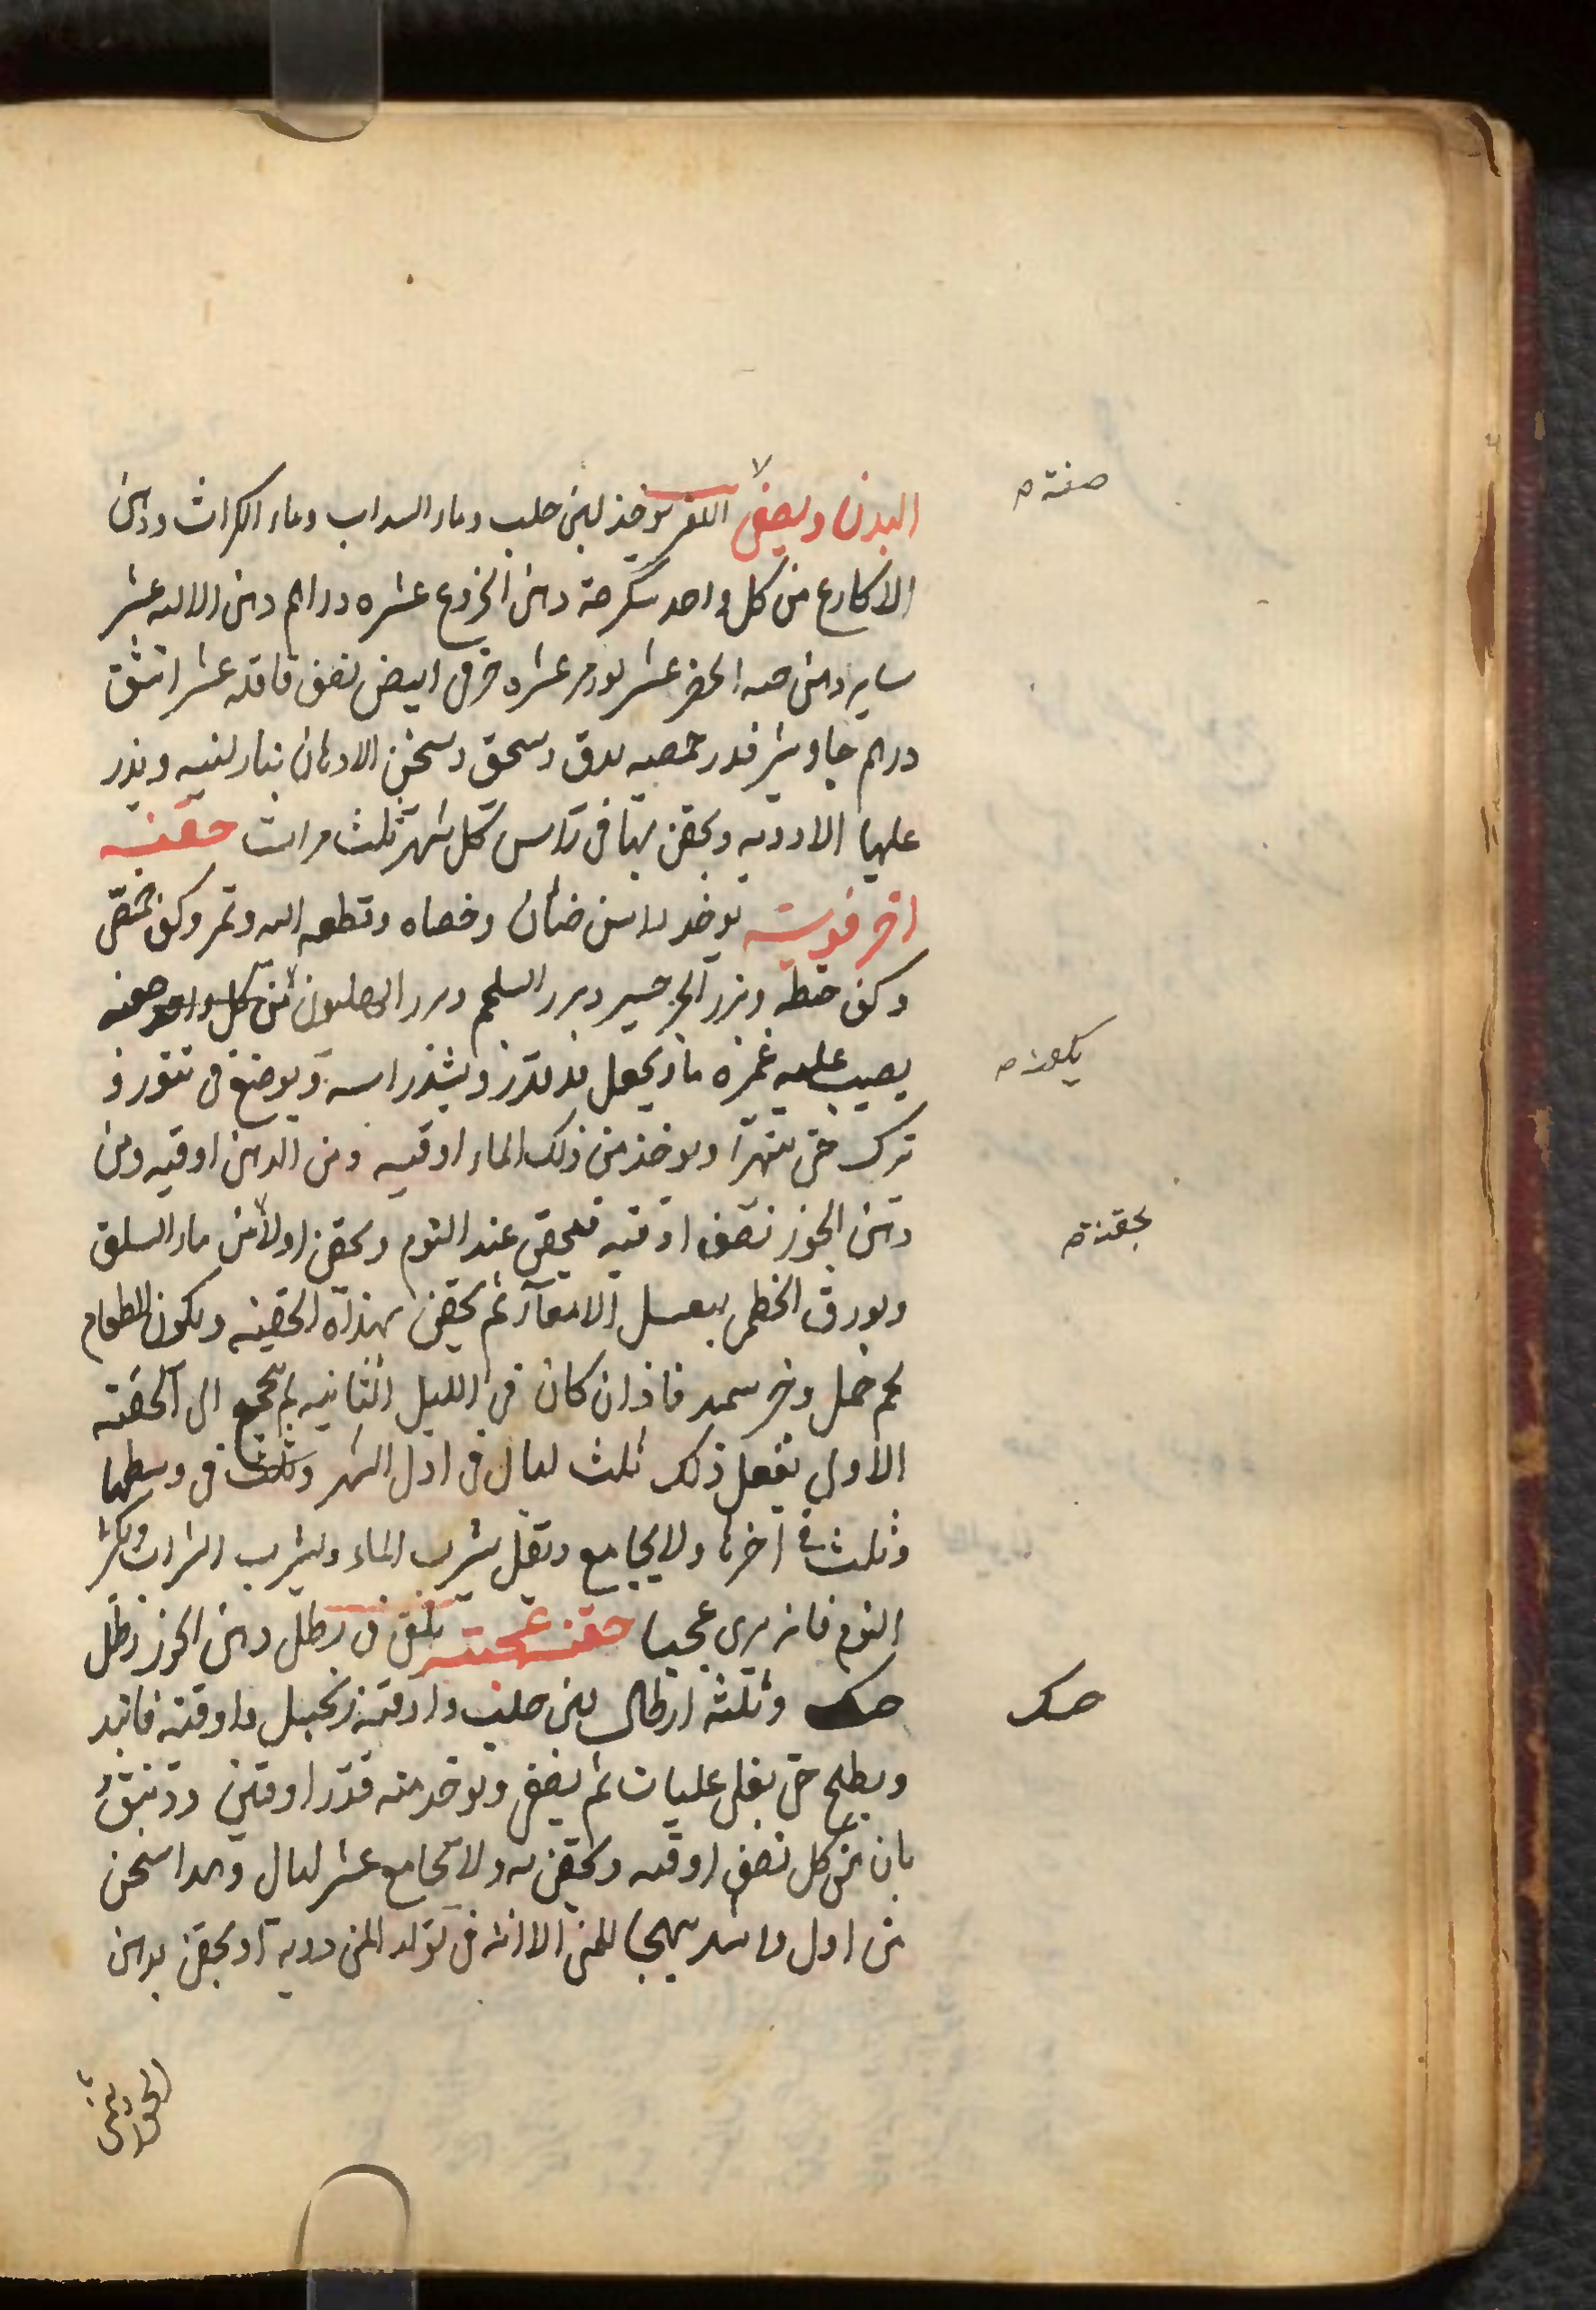 البدن ويصفى اللون يوخذ لبن حلب وماء السداب وماء الكراث ودهن
صفته
الاكارع من كل واحد سكرجة دهن الخروع عشره دراهم دهن الاليه عشر
دهن حبه الخضر عشر بورمر عشره خرق ابيض نصف قاقله عشر اتثق
دراهم جاوشير قدر حمصيه يدق ويسحق ويسخن الادهان بنار لينيه ويذر
عليها الادويه ويحقن بها فى راس كل شهر ثلث مرات حقنه
اخر قويته يوخذ راس ضأن وخصاه وقطعه اليه وتمر وكف حمص
وكف حنطه وبزر الجرجير وبزر السلجم وبزر الهليون من كل واحد حفنه
يصب عليه غمره ماء ويجعل فى قدر ويشد راسه ويوضع فى تنور و
يترك حتى يتهرآ ويوخذ من ذلك الماء اوقيه ومن الدهن اوقيه ومن
دهن الجوز نصف اوقيه فيحقن عند النوم ويحقن اولا من ماء السلق
بحقنة
وبورق الخطمى يغسل الامعآء ثم يحقن بهذه الحقنه ويكون الطعام
لحم حمل وخبز سميد فاذا ان كان فى الليل الثانيه لم يحتج الى الحقنه
الاولى يفعل ذلك ثلث ليال فى اول الشهر وثلث فى وسطها
وثلث فى آخرها ولا يجامع ويقل شرب الماء ويشرب الشراب ويكثر
النوم فانه يرى عجبا حقنه عجيبه يلقى فى رطل دهن الجوز رطل
حسك وثلثه ارطال لبن حليب واوقيه زنجبيل واوقيه فانيد
حسك
ويطبخ حتى يغلى غليات ثم يصفى ويوخذ منه قدر اوقيتين ودنبق
بان من كل نصف اوقيه ويحقن به ولا يجامع عشر ليال وهذا اسخن
من اول واشد تهيجا للمنى الا انه فى تولد المنى دونه او يحقن بدهن